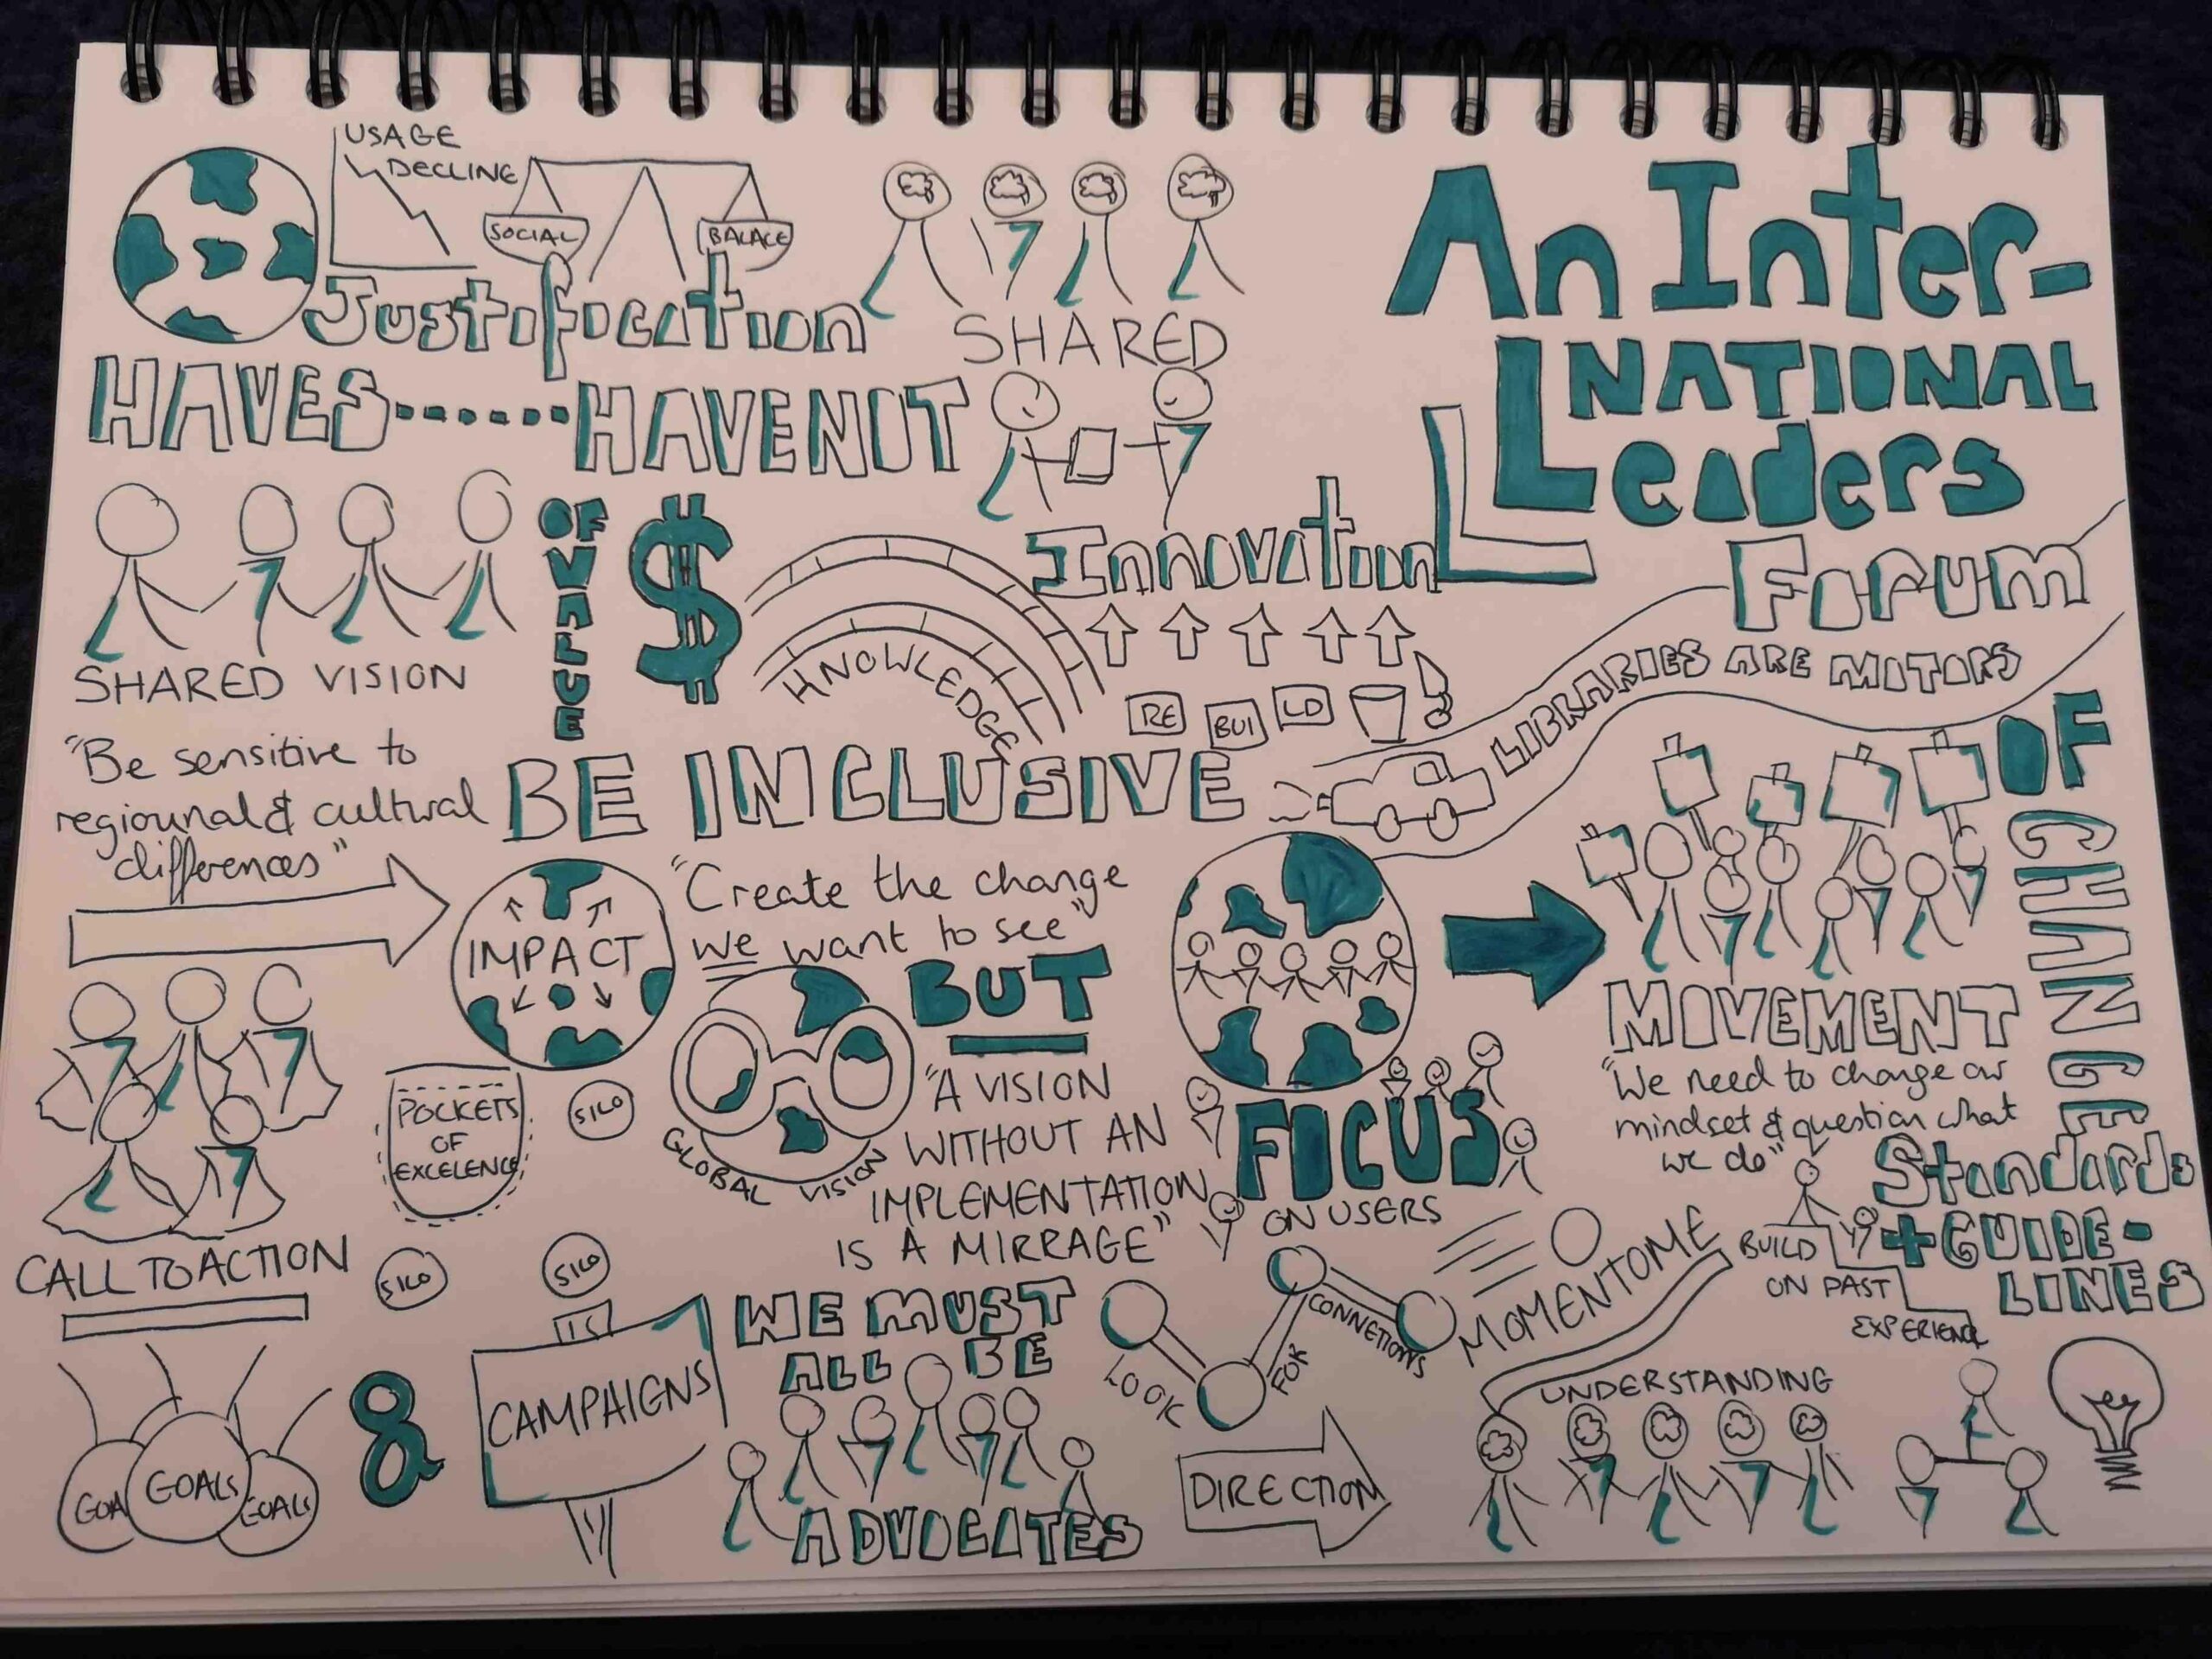 An Inter-
NATIONAL
Leaders
Forum
USAGE
DECLINE
SOCIAL
BALACE
Justification
OF
VALUE
HAVES......HAVENOT
SHARED
SHARED VISION
Innovation
KNOWLEDGE
RE BUI LD
LIBRARIES ARE MOTORS
OF
CHANGE
"Be sensitive to
regiounal & cultural
differences"
BE INCLUSIVE
IMPACT
"Create the change
we want to see"
BUT
"A VISION
WITHOUT AN
IMPLEMENTATION
IS A MIRRAGE"
GLOBAL VISION
POCKETS
OF
EXCELENCE
SILO
SILO
SILO
CALL TO ACTION
FOCUS
ON USERS
MOVEMENT
"We need to change our
mindset & question what
we do"
Standards
+ GUIDE-
LINES
BUILD
ON PAST
EXPERIENCE
MOMENTOME
LOOK
FOR
CONNETIONS
GOALS
GOALS
GOALS
&
CAMPAIGNS
WE MUST
ALL BE
ADVOCATES
DIRECTION
UNDERSTANDING